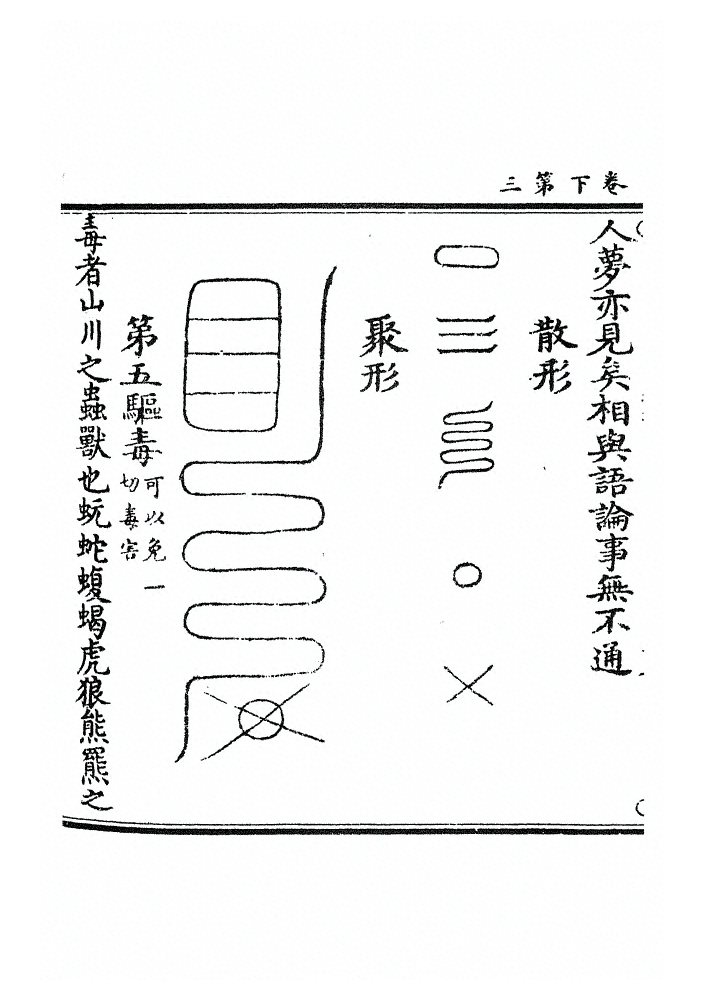 卷下第三
人夢亦見矣相與語論事無不通
散形
聚形
第五驅毒可以免一切毒害
毒者山川之蟲獸也蚖蛇蝮蝎虎狼熊羆之